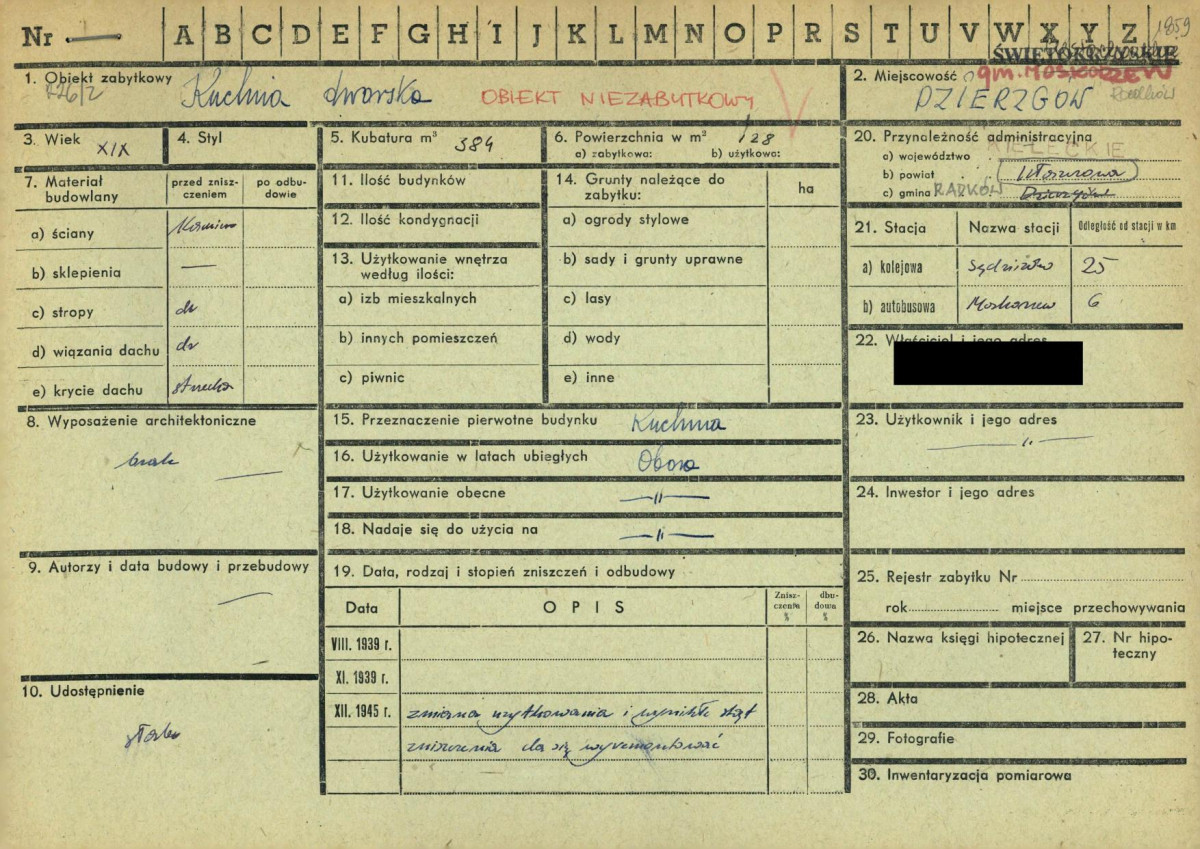 Nr — A B C D E F G H I J K L M N O P R S T U V W X Y Z 1859
ŚWIĘTOKRZYSKIE
1. Obiekt zabytkowy Kuchnia dworska OBIEKT NIEZABYTKOWY
726/2
2. Miejscowość gm. MOSKORZEW
DZIERZGÓW
3. Wiek XIX
4. Styl
5. Kubatura m³ 384
6. Powierzchnia w m² 128
a) zabytkowa: b) użytkowa:
20. Przynależność administracyjna
a) województwo KIELECKIE
b) powiat Włoszczowa
c) gmina RADKÓW
7. Materiał budowlany
przed zniszczeniem
po odbudowie
a) ściany
b) sklepienia —
c) stropy dr
d) wiązania dachu dr
e) krycie dachu strzecha
11. Ilość budynków
12. Ilość kondygnacji
13. Użytkowanie wnętrza według ilości:
a) izb mieszkalnych
b) innych pomieszczeń
c) piwnic
14. Grunty należące do zabytku:
ha
a) ogrody stylowe
b) sady i grunty uprawne
c) lasy
d) wody
e) inne
21. Stacja Nazwa stacji Odległość od stacji w km
a) kolejowa Sędziszów 25
b) autobusowa Moskorzew 6
22. Właściciel i jego adres
8. Wyposażenie architektoniczne
brak —
15. Przeznaczenie pierwotne budynku Kuchnia
16. Użytkowanie w latach ubiegłych Obora
17. Użytkowanie obecne —"—
18. Nadaje się do użycia na —"—
23. Użytkownik i jego adres
—"—
24. Inwestor i jego adres
9. Autorzy i data budowy i przebudowy
—
19. Data, rodzaj i stopień zniszczeń i odbudowy
Data OPIS Zniszczenia % dbudowa %
VIII. 1939 r.
XI. 1939 r.
XII. 1945 r. zmiana użytkowania i wynikłe stąd
zniszczenia da się wyremontować
10. Udostępnienie
25. Rejestr zabytku Nr
rok miejsce przechowywania
26. Nazwa księgi hipotecznej
27. Nr hipoteczny
28. Akta
29. Fotografie
30. Inwentaryzacja pomiarowa